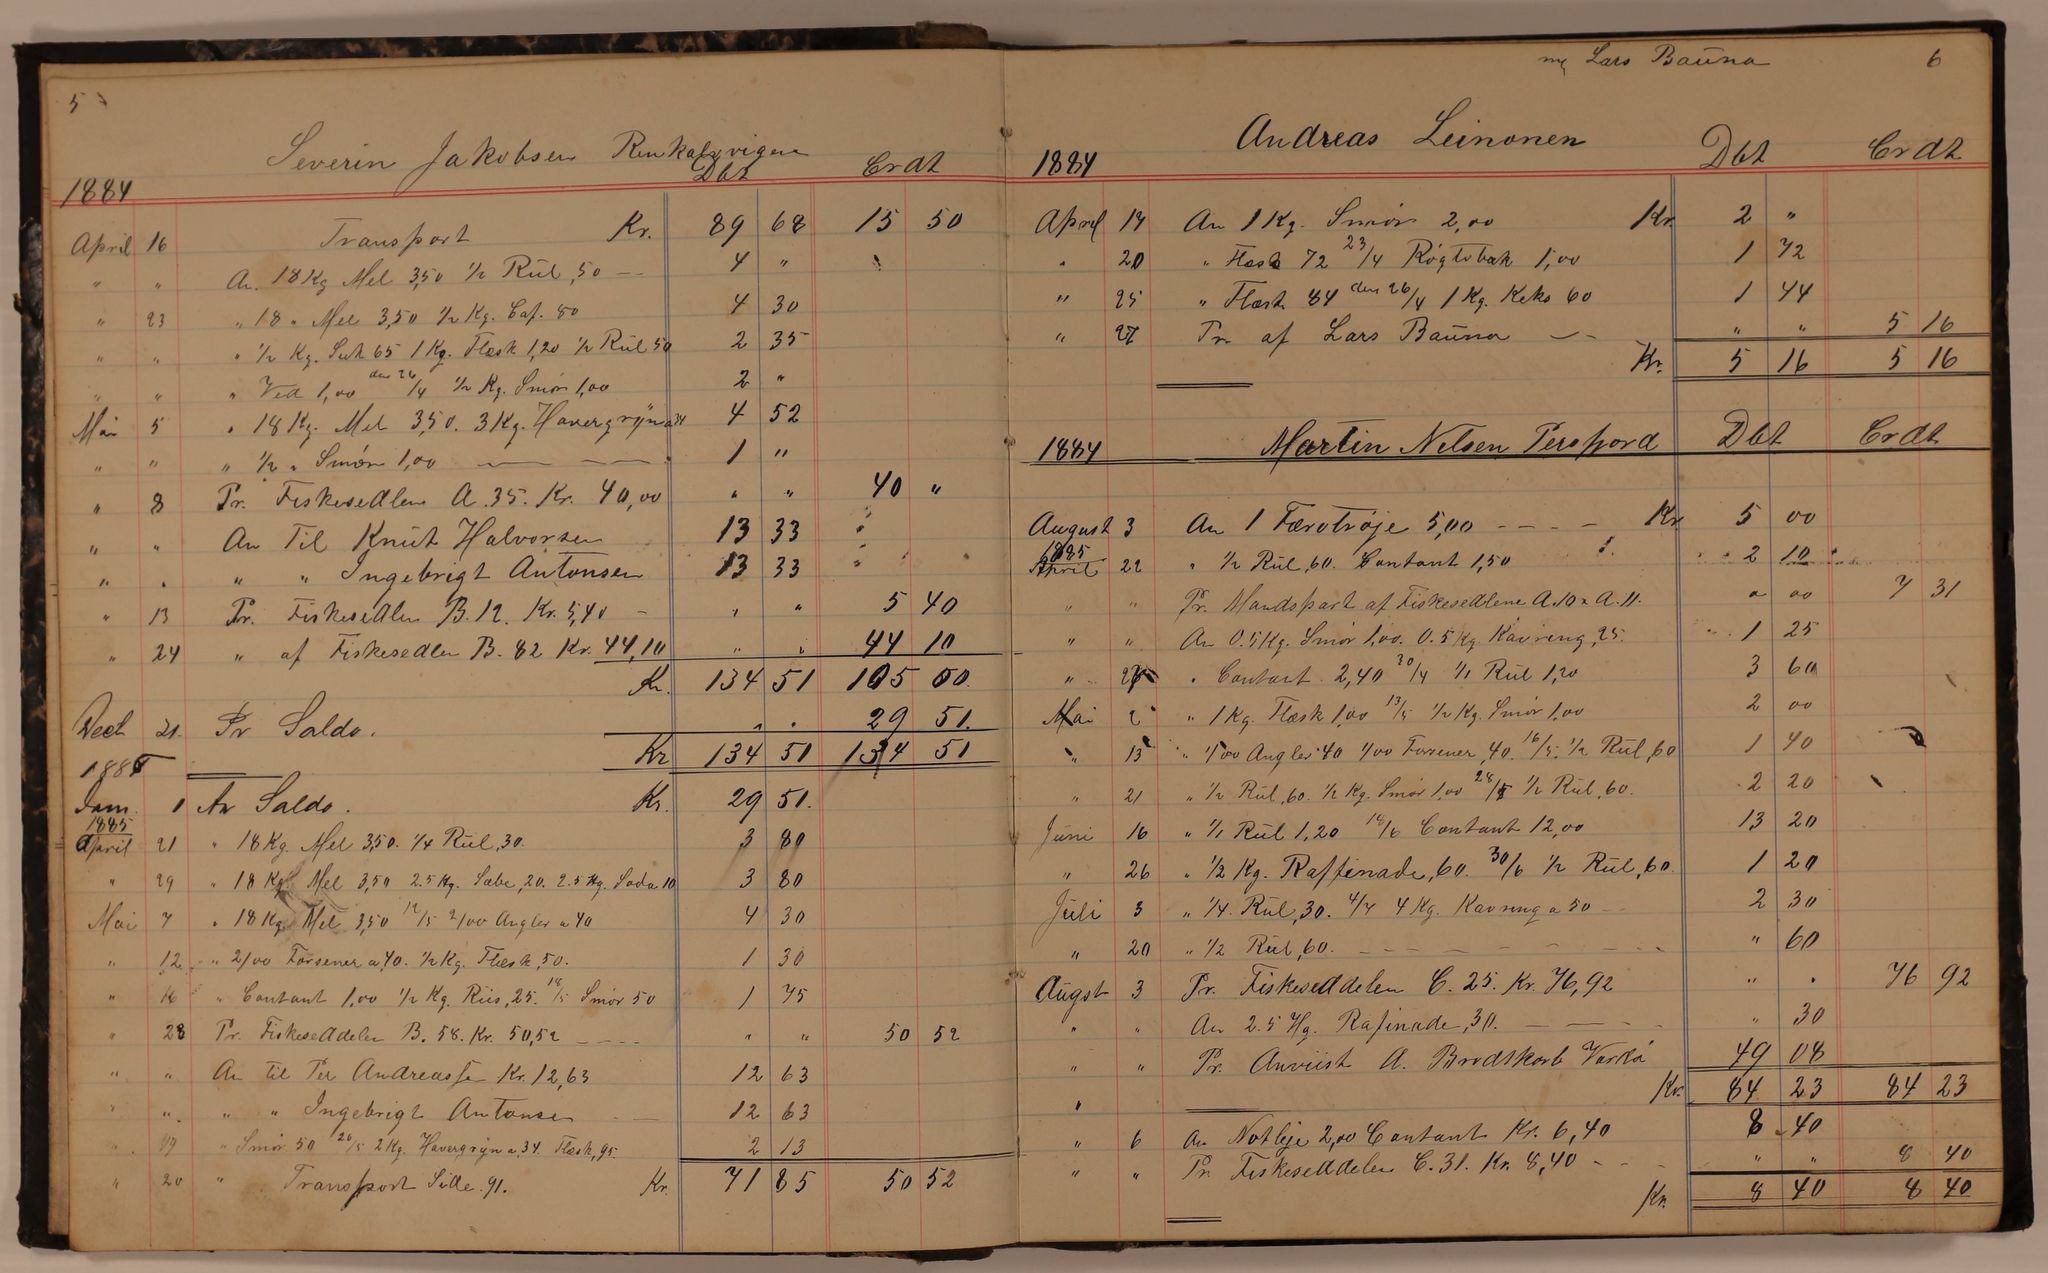 5
Severin Jakobsen Renkalsvigen
1884 Dbt Crdt
April 16 Transport Kr. 89 68 15 50
" " An. 18 Kg Mel 3,50 1/2 Rul ,50 — 4 "
" 23 " 18 " Mel 3,50 1/2 Kg. Caf. 80 4 30
" " " 1/2 Kg. Suk 65 1 Kg. Flæsk 1,20 1/2 Rul 50 2 35
" " " Ved 1,00 den 26/4 1/2 Kg. Smør 1,00 2 "
Mai 5 " 18 Kg. Mel 3,50. 3 Kg. Havergryn a 34 4 52
" " " 1/2 " Smør 1,00 — — 1 "
" 8 Pr. Fiskesedlen A. 35. Kr. 40,00 " " 40 "
" " An Til Knut Halvorsen 13 33 "
" " " " Ingebrigt Antonsen 13 33 "
" 13 Pr. Fiskesedlen B. 12. Kr. 5,40 — " " 5 40
" 24 " af Fiskesedlen B. 82 Kr. 44,10 " " 44 10
Kr. 134 51 105 00.
Decb 31. Pr Saldo. " " 29 51.
Kr 134 51 134 51
1885
Jan. 1 An Saldo. Kr. 29 51.
1885
April 21 " 18 Kg. Mel 3,50. 1/4 Rul ,30. 3 80
" 29 " 18 Kg Mel 3,50 2.5 Kg. Sæbe ,20. 2.5 Kg. Soda 10 3 80
Mai 7 " 18 Kg. Mel 3,50 12/5 2/00 Angler a 40 4 30
" 12 " 2/00 Forsener a ,40. 1/2 Kg. Flæsk ,50. 1 30
" 16 " Contant 1,00 1/2 Kg. Riis ,25. 18/5 Smør 50 1 75
" 28 Pr. Fiskeseddelen B. 58. Kr. 50,52 — — " " 50 52
" " An til Per Andreassen Kr. 12,63 12 63
" " " " Ingebrigt Antonsen — 12 63
" 19 " Smør 50 20/5 2 Kg. Havergryn a ,34. Flæsk ,95. 2 13
" 20 " Transport Side 91. Kr. 71 85 50 52
Lars Bauna 6
Andreas Leinonen
1884 Dbt Crdt
April 17 An 1 Kg. Smør 2,00 Kr. 2 "
" 20 " Flæsk 72 23/4 Røgtobak 1,00 1 72
" 25 " Flæsk 84 den 26/4 1 Kg. Keks 60 1 44
" 27 Pr. af Lars Bauna — " " 5 16
Kr. 5 16 5 16
1884 Martin Nilsen Persfjord Dbt Crdt
August 3 An 1 Færøtrøje 5,00 — — — Kr 5 00
1885
April 22 " 1/2 Rul ,60. Contant 1,50 2 10
" " Pr. Mandspart af Fiskesedlene A. 10 & A. 11. " 00 7 31
" " An 0.5 Kg. Smør 1,00. 0.5 Kg. Kavreng ,25. 1 25
" " Contant 2,40 30/4 1/1 Rul 1,20 3 60
Mai 2 " 1 Kg. Flæsk 1,00 13/5 1/2 Kg. Smør 1,00 2 00
" 15 " 1/00 Angler 40 1/00 Forsener ,40. 16/5. 1/2 Rul ,60 1 40
" 21 " 1/2 Rul ,60. 1/2 Kg. Smør 1,00 28/5 1/2 Rul ,60. 2 20
Juni 16 " 1/1 Rul 1,20 18/6 Contant 12,00 13 20
" 26 " 1/2 Kg. Raffinade ,60. 30/6 1/2 Rul ,60. 1 20
Juli 3 " 1/4 Rul ,30. 4/7 4 Kg. Kavreng a 50 — 2 30
" 20 " 1/2 Rul ,60. — — — — " 60
Augst 3 Pr. Fiskeseddelen C. 25. Kr. 76,92 " " 76 92
" " An 2.5 Hg. Rafinade ,30. — — " 30
" " Pr. Anviist A. Brodtkorb Vardø 49 08
" Kr. 84 23 84 23
" 6 An Notleje 2,00 Contant Kr. 6,40 8 40
" " Pr. Fiskeseddelen C. 31. Kr. 8,40 — — " " 8 40
Kr. 8 40 8 40